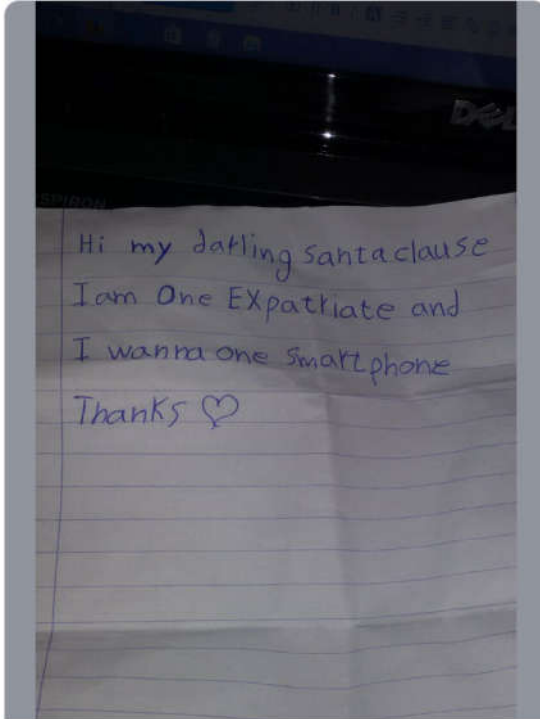 DELL
SPIRON
Hi my darling santa clause
I am One EXpatriate and
I wanna one smartphone
Thanks ♡